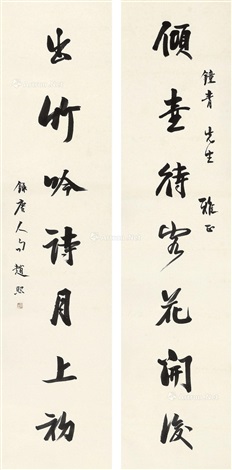 鐘青先生 雅正
傾壺待客花開後
出竹吟詩月上初
錄唐人句 趙熙